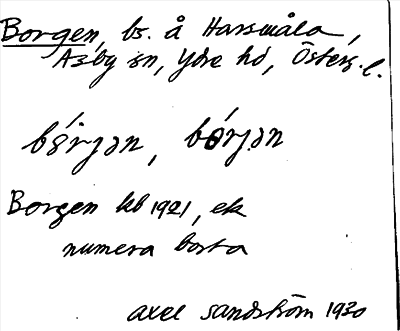 Borgen, bs. å Harsmåla,
Asby sn, Ydre hd, Österg. l.
bórjən, bórjən
Borgen kb 1921, ek
numera borta
Axel Sandström 1930